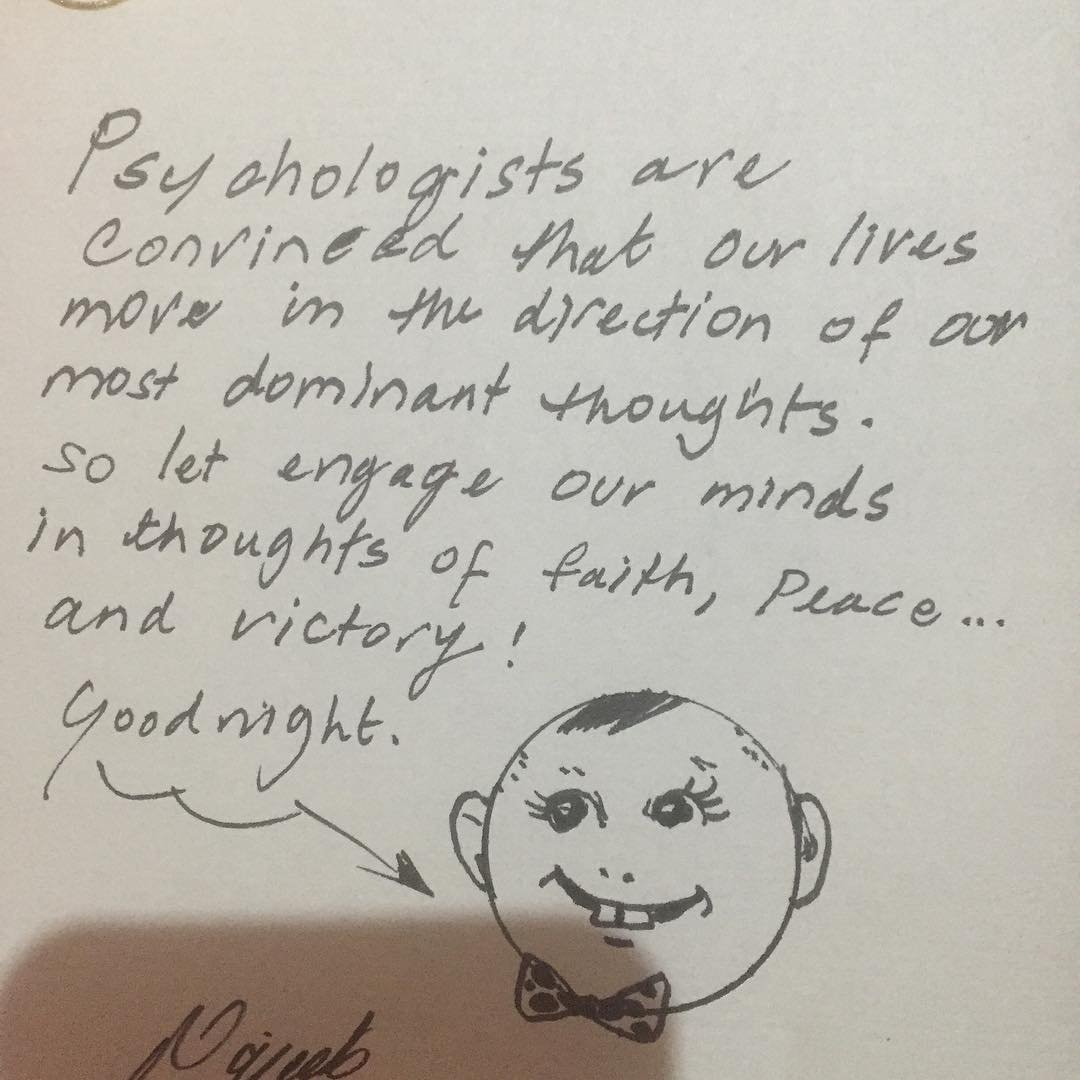 Psychologists are
convinced that our lives
move in the direction of our
most dominant thoughts.
so let engage our minds
in thoughts of faith, Peace...
and victory!
Goodnight.
Najeeb